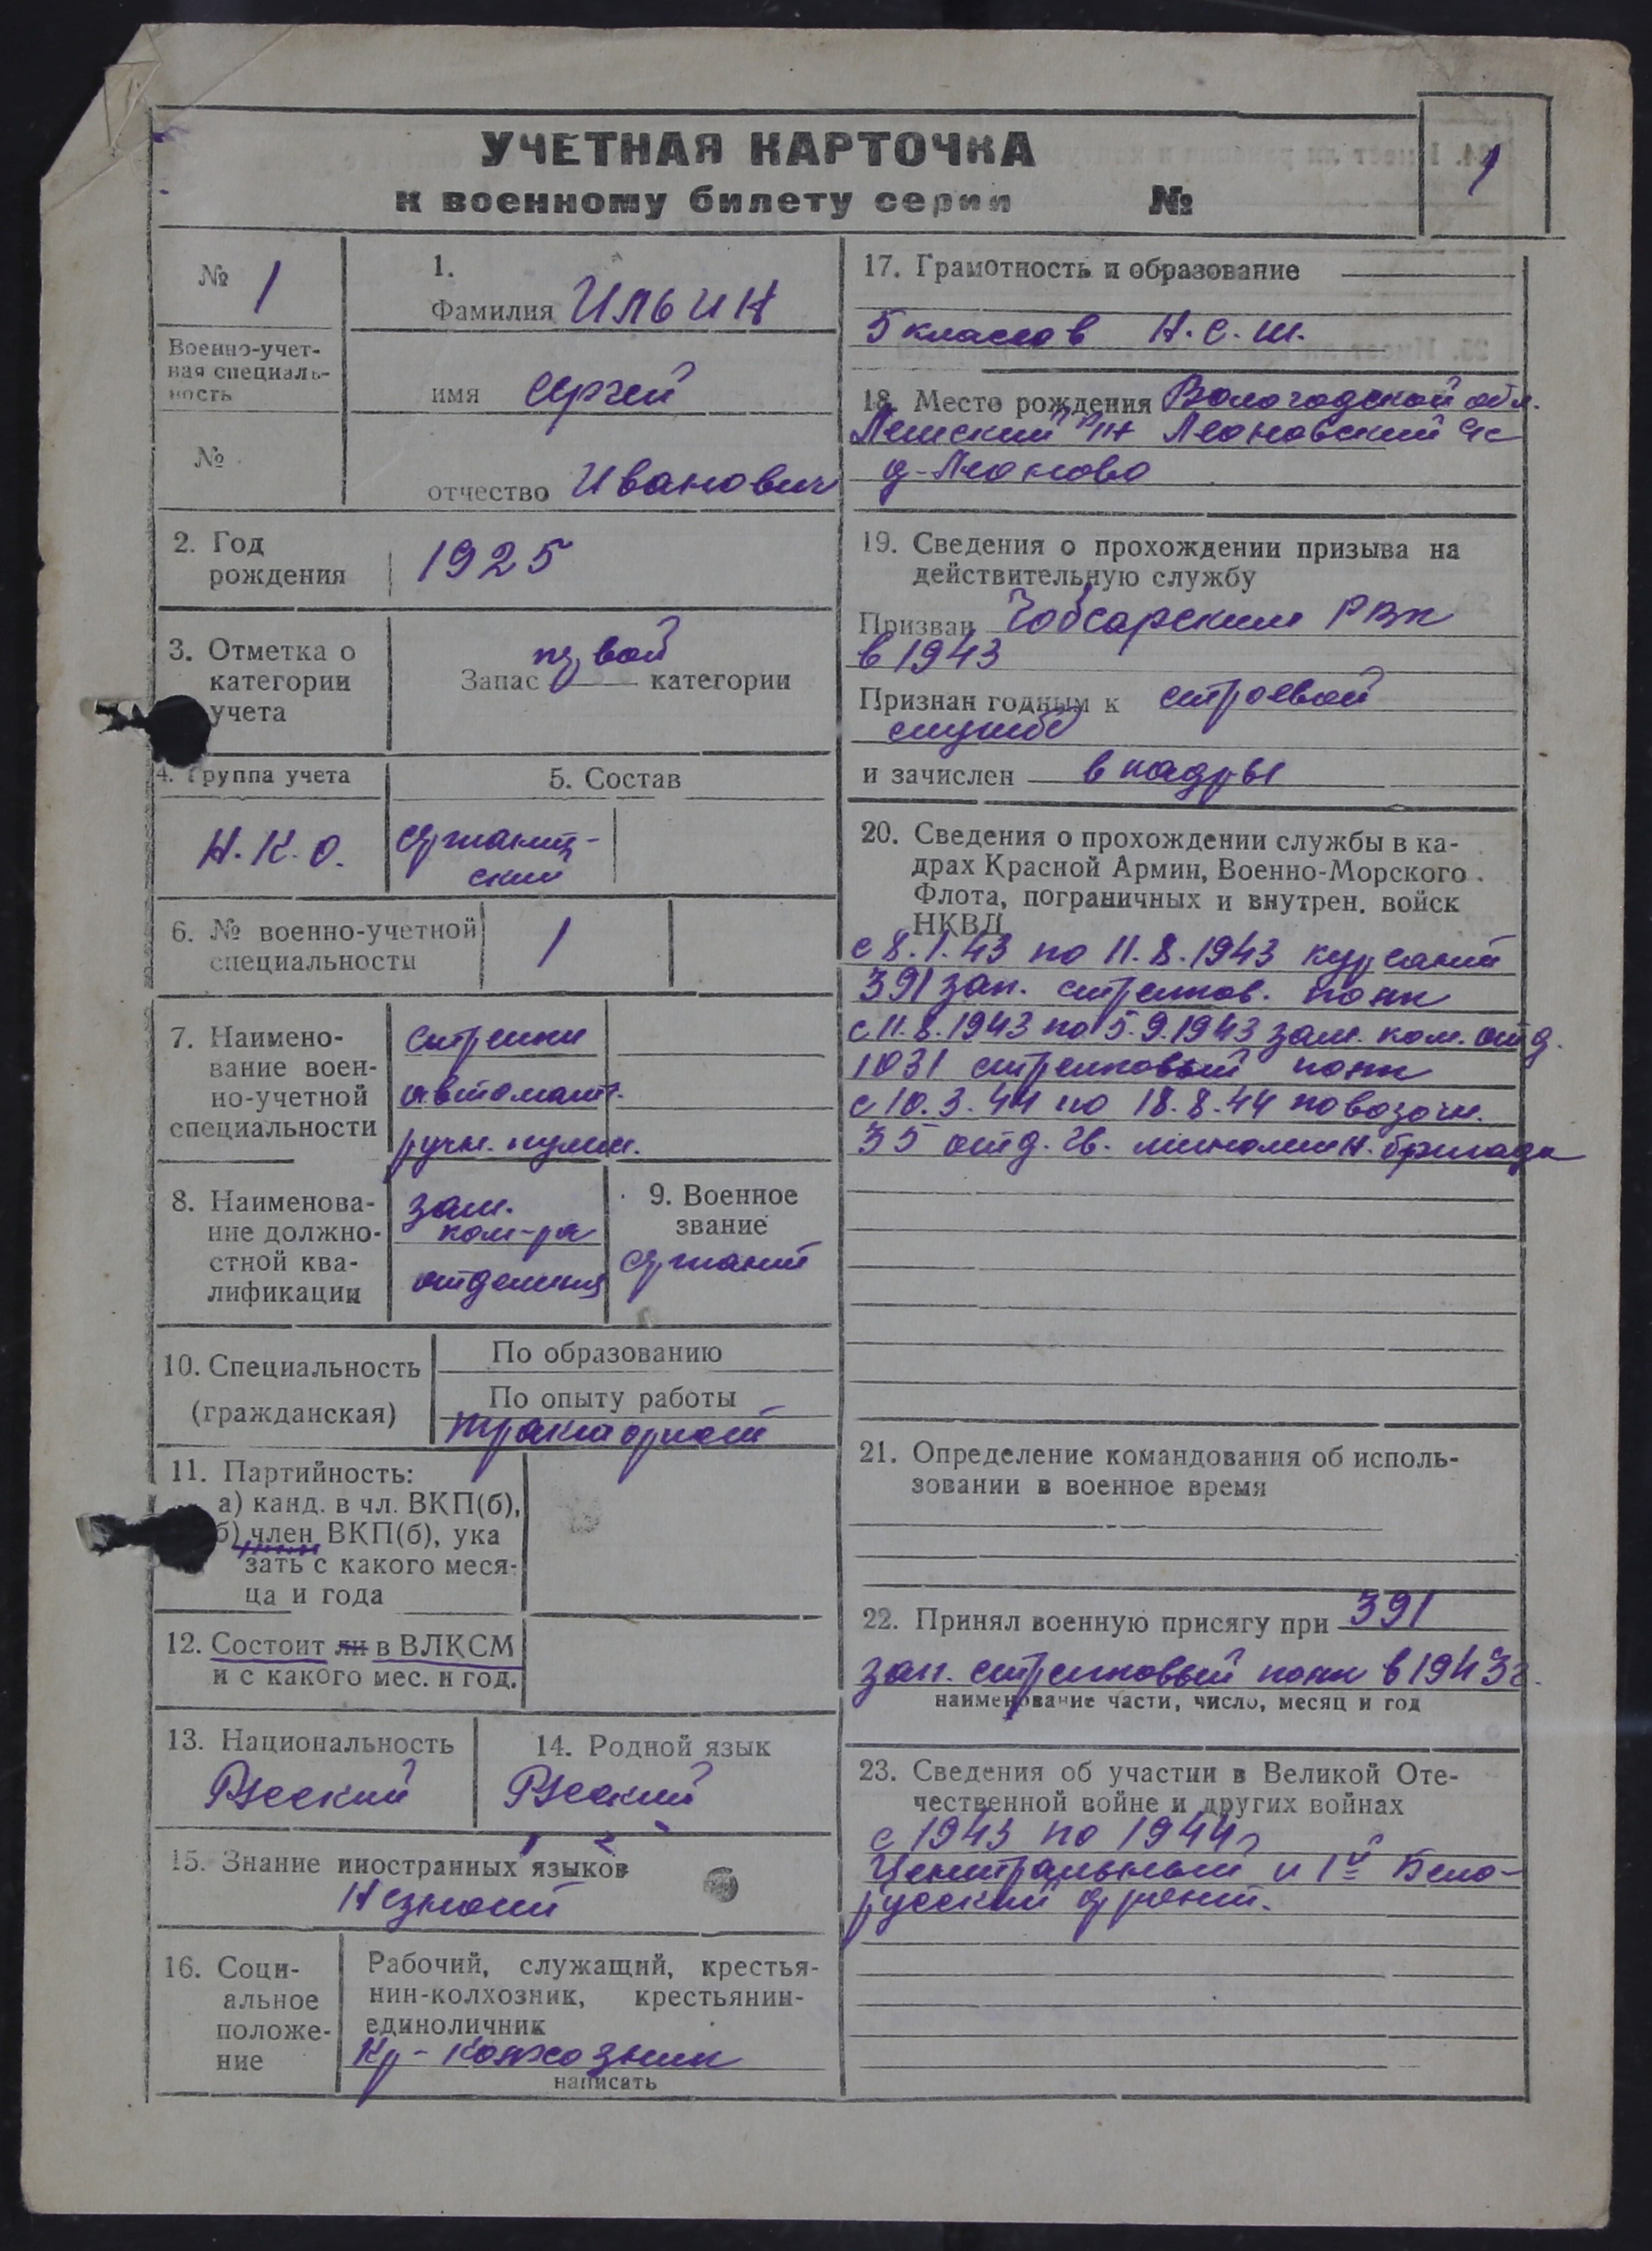 УЧЕТНАЯ КАРТОЧКА
к военному билету серии №
1
№ 1
Военно-учет-
ная специаль-
ность
№
1.
Фамилия Ильин
имя Сергей
отчество Иванович
2. Год
рождения
1925
3. Отметка о
категории
учета
первой
Запас категории
4. Группа учета
5. Состав
Н.К.О.
сержант-
ский
6. № военно-учетной
специальности
1
7. Наимено-
вание воен-
но-учетной
специальности
стрелки
автомат.
ручн. пулем.
8. Наименова-
ние должно-
стной ква-
лификации
зам.
ком-ра
отделения
9. Военное
звание
сержант
10. Специальность
(гражданская)
По образованию
По опыту работы
тракторист
11. Партийность:
а) канд. в чл. ВКП(б),
б) член ВКП(б), ука
зать с какого меся-
ца и года
12. Состоит ли в ВЛКСМ
и с какого мес. и год.
13. Национальность
Русский
14. Родной язык
Русский
15. Знание иностранных языков
Незнает
16. Соци-
альное
положе-
ние
Рабочий, служащий, крестья-
нин-колхозник, крестьянин-
единоличник
Кр-колхозник
написать
17. Грамотность и образование
5 классов Н.С.Ш.
18. Место рождения Вологодской обл.
р-н Леоновский с/с
д-Леоново
19. Сведения о прохождении призыва на
действительную службу
Призван Чебсарским РВК
в 1943
Признан годным к строевой
службе
и зачислен в кадры
20. Сведения о прохождении службы в ка-
драх Красной Армии, Военно-Морского
Флота, пограничных и внутрен. войск
НКВД
с 8.1.43 по 11.8.1943 курсант
391 зап. стрелков. полк
с 11.8.1943 по 5.9.1943 зам. ком. отд.
1031 стрелковый полк
с 10.3.44 по 18.8.44 повозочн.
35 отд. гв. бригада
21. Определение командования об исполь-
зовании в военное время
22. Принял военную присягу при 391
зап. стрелковый полк в 1943г.
наименование части, число, месяц и год
23. Сведения об участии в Великой Оте-
чественной войне и других войнах
с 1943 по 1944г
Центральный и 1й Бело-
русский фронт.